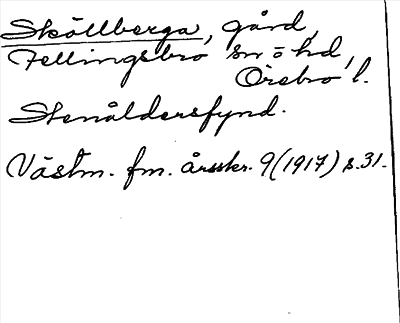 Sköllberga, gård,
Fellingsbro sn o hd,
Örebro l.
Stenåldersfynd.
Västm. fm. årsskr. 9 (1917) s. 31.